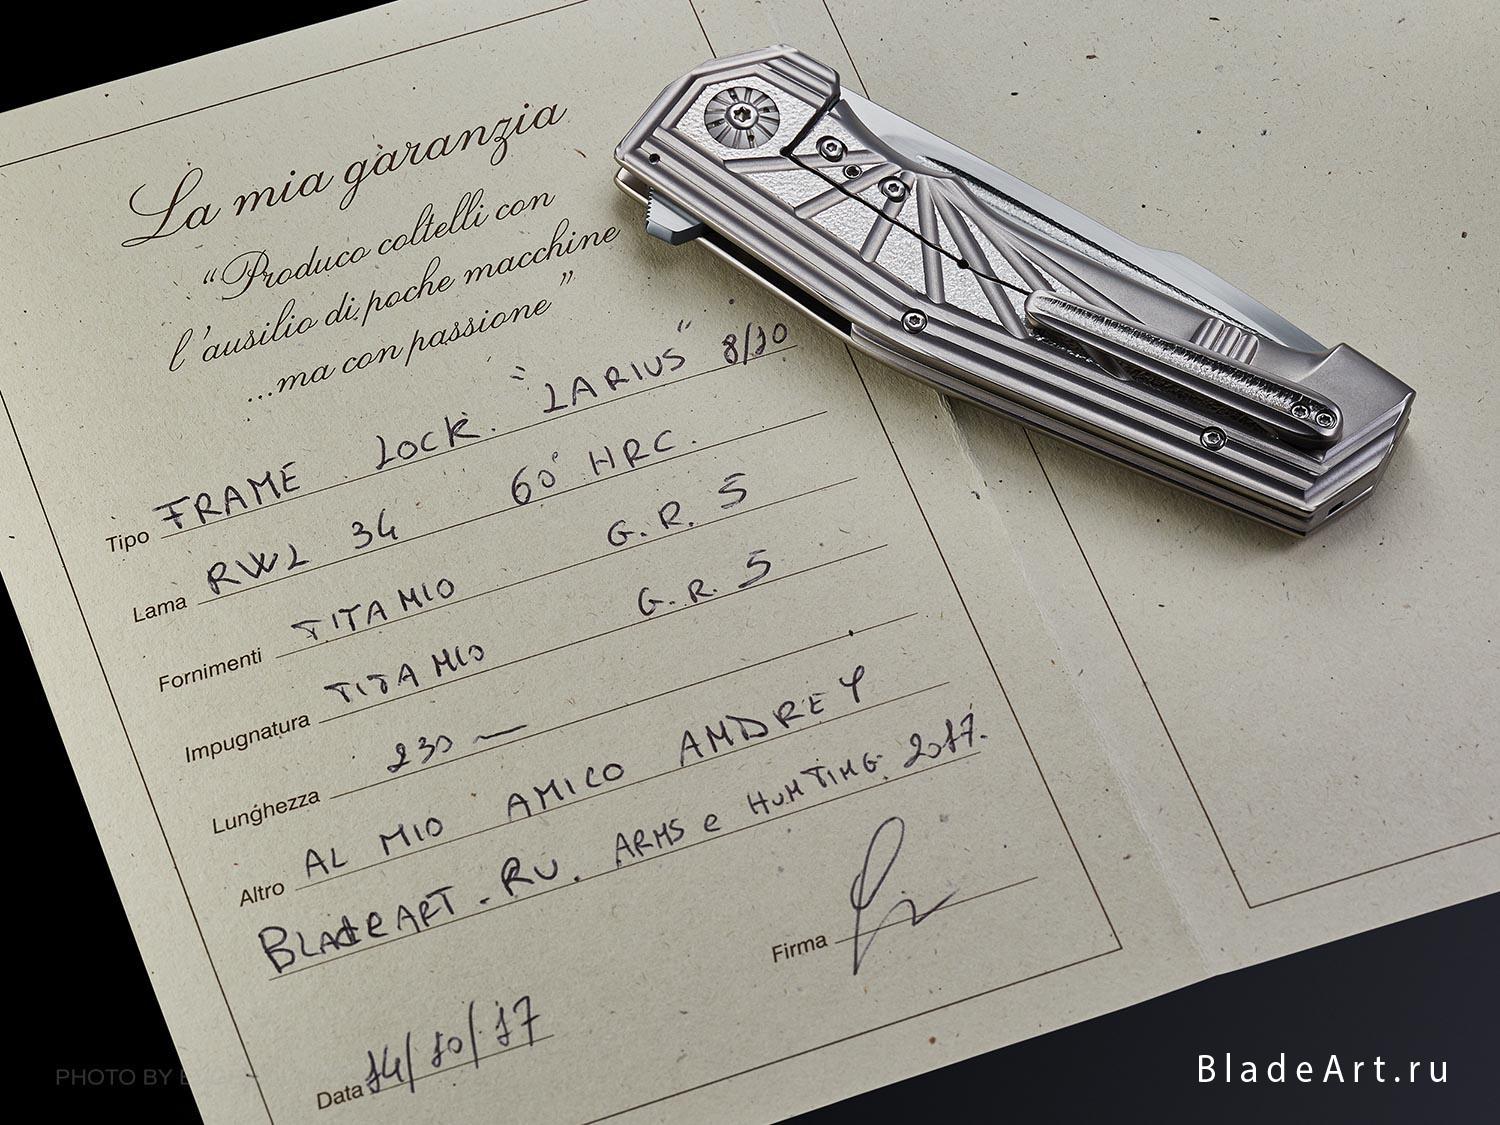 La mia garanzia
“Produco coltelli con
l’ausilio di poche macchine
...ma con passione”
Tipo FRAME LOCK. "LARIUS" 8/10
Lama RWL 34 60° HRC.
Fornimenti TITANIO G.R. 5
Impugnatura TITANIO G.R. 5
Lunghezza 230 —
Altro AL MIO AMICO ANDREY
BLADEART.RU. ARMS e HUNTING 2017.
Firma
Data 14/10/17
PHOTO BY
BladeArt.ru